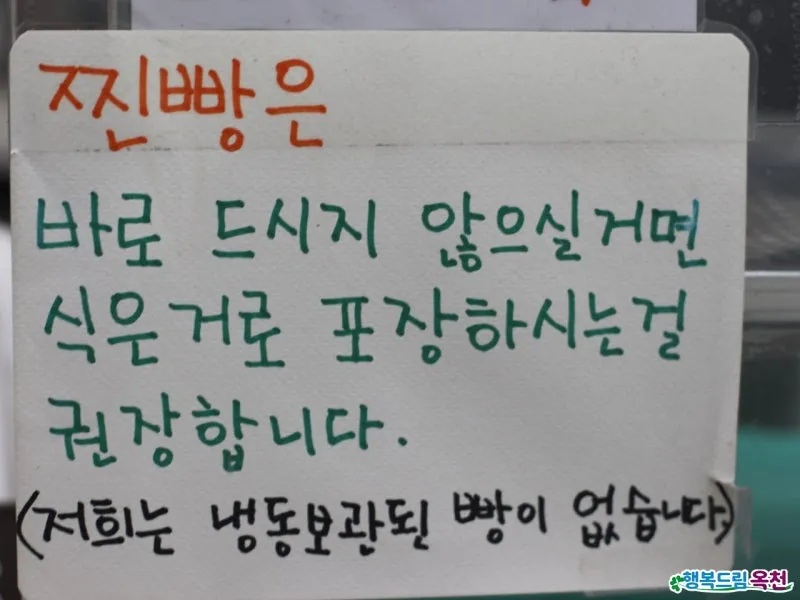 찐빵은
바로 드시지 않으실거면
식은거로 포장하시는걸
권장합니다.
(저희는 냉동보관된 빵이 없습니다.)
행복드림옥천